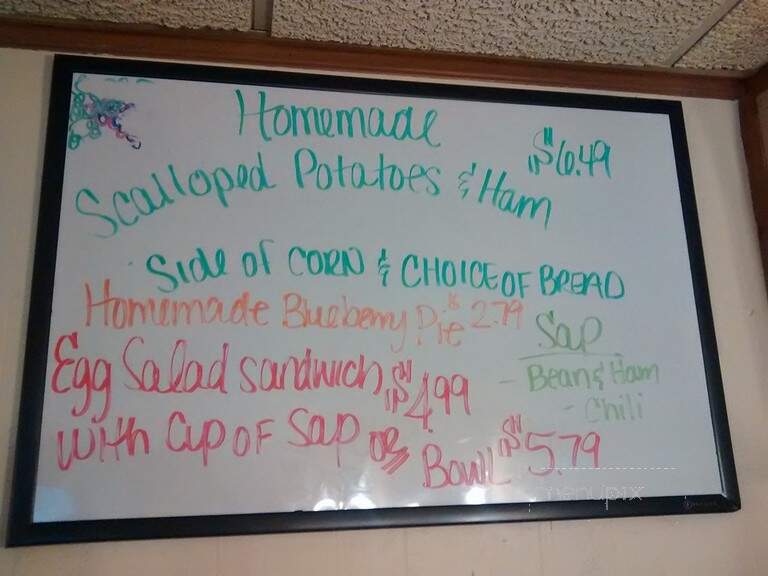 Homemade $6.49
Scalloped Potatoes & Ham
Side of CORN & CHOICE OF BREAD
Homemade Blueberry Pie $2.79
Sap
- Bean & Ham
- Chili
Egg Salad Sandwich $4.99
with Cup OF Sap OR Bowl $5.79
menupix